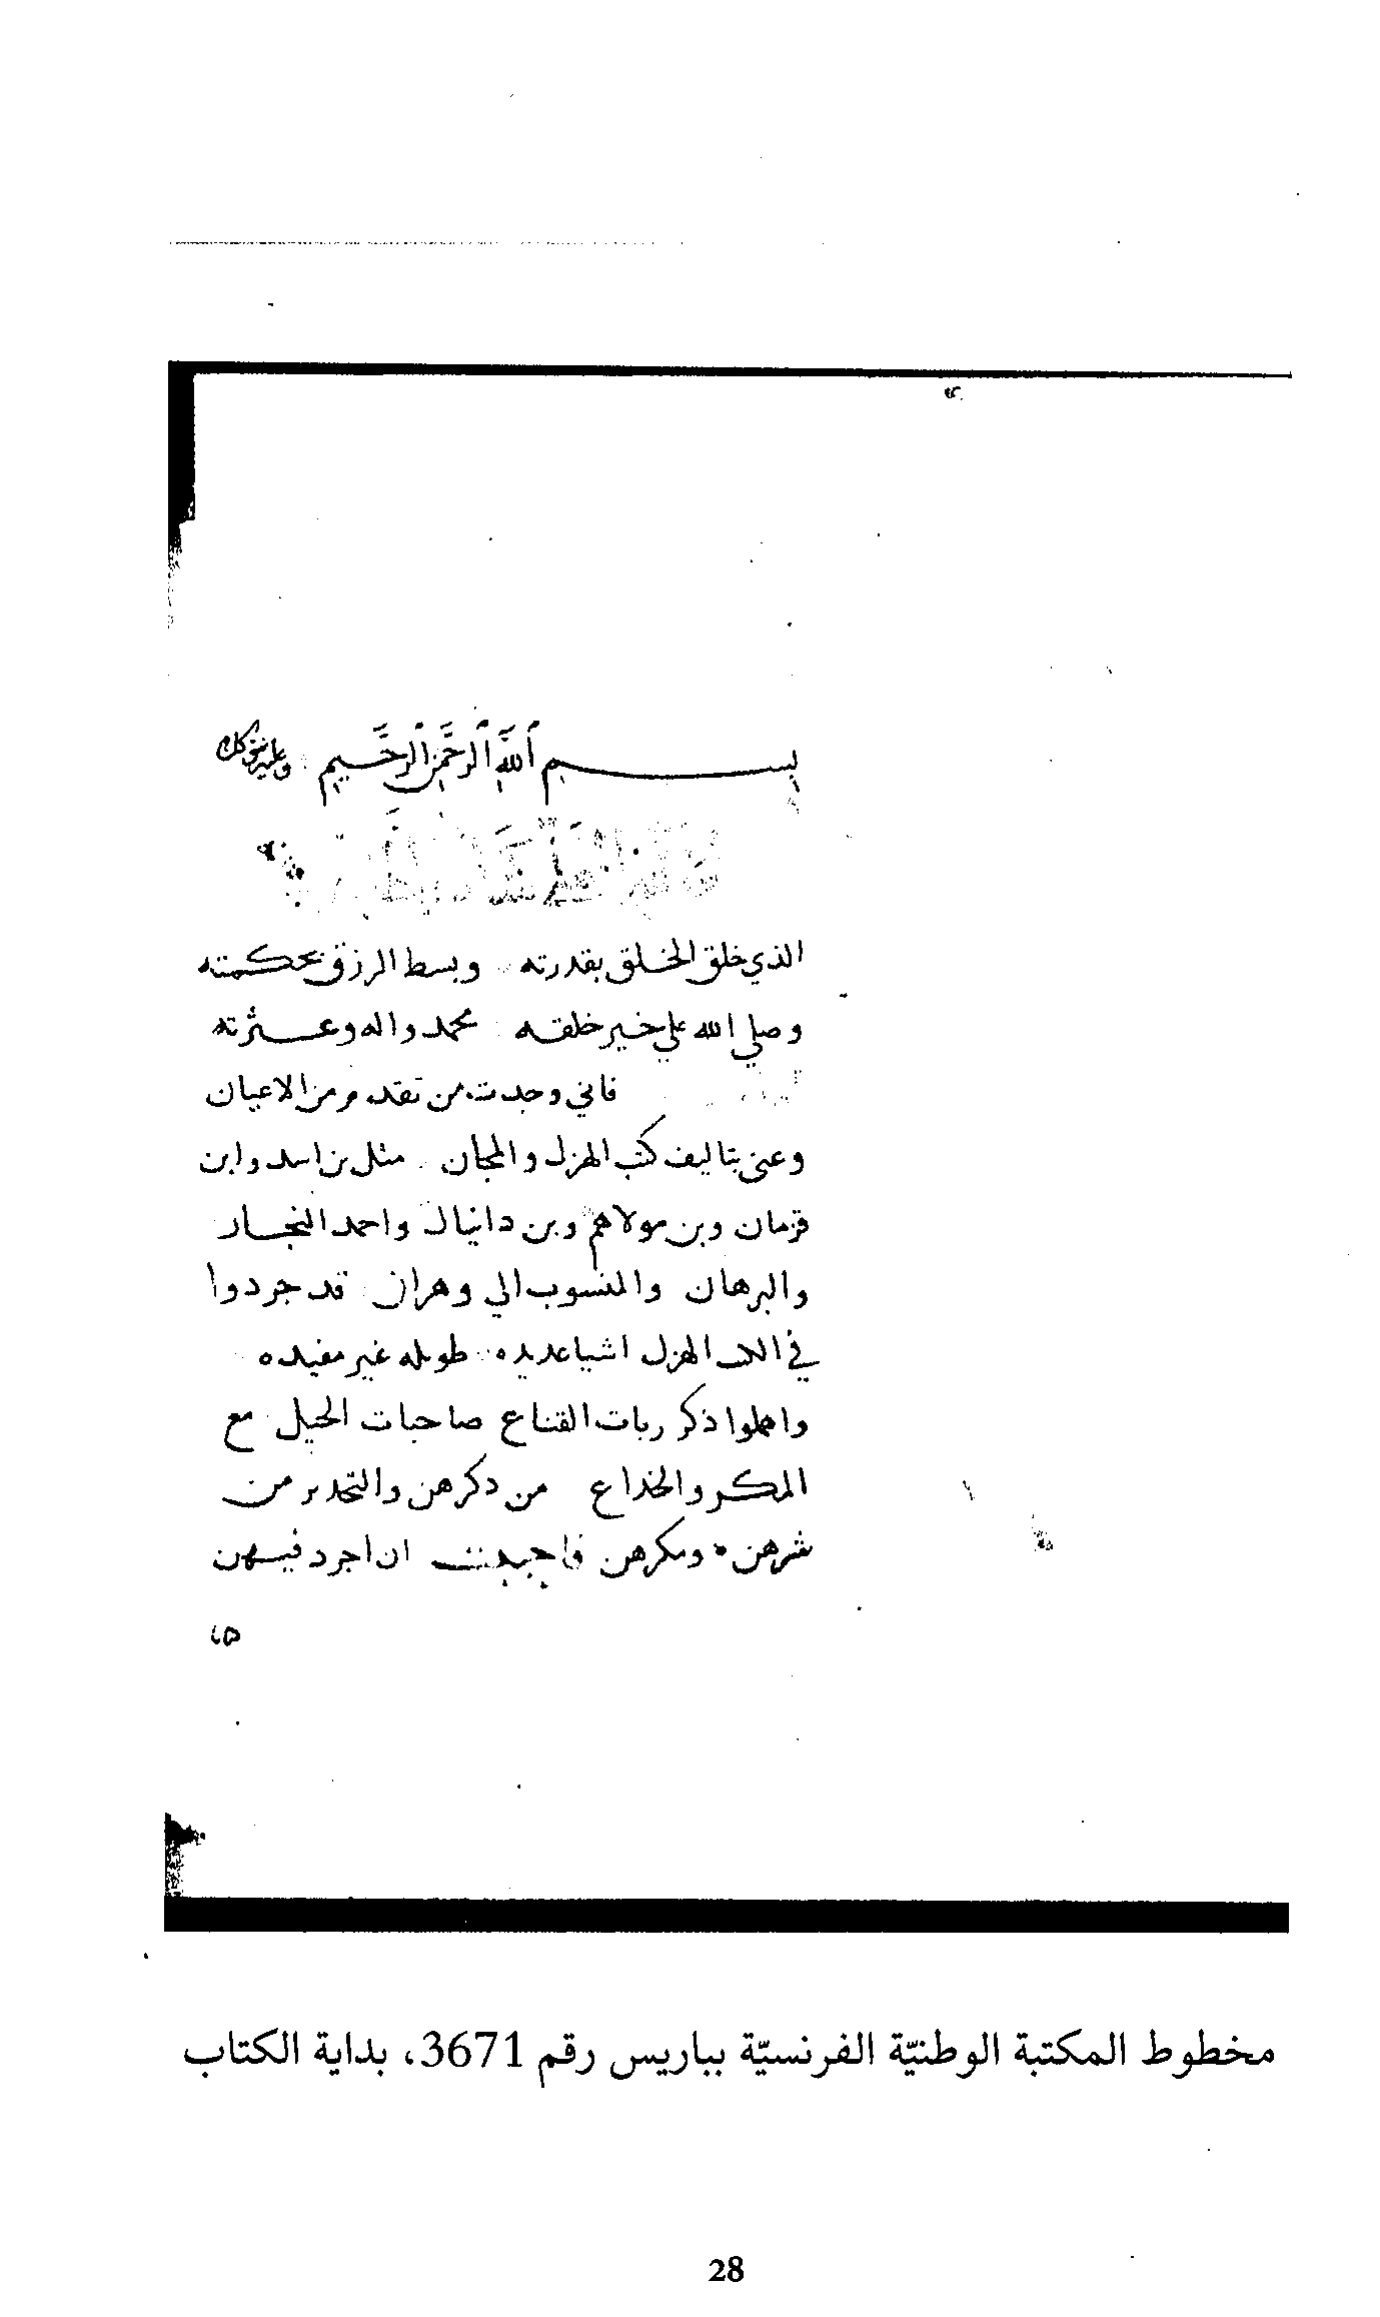 بسم اللَّه الرحَّمن الرحَّيم
الذي خلق الخلق بقدرته وبسط الرزق بحكمته
وصلي الله علي خير خلقه محمد واله وعثرته
فاني وجدت من تقدم من الاعيان
وعني بتاليف كتب الهزل والمجان مثل بن اسد وابن
قزمان وبن مولاهم وبن دانيال واحمد النجار
والبرهان والمنسوب الي وهران قد جردوا
في الهزل اشيا عديده طويله غير مفيده
واهملوا ذكر ربات القناع صاحبات الحيل مع
المكر والخداع من دكرهن والتحدير من
شرهن ومكرهن فاحببت ان اجرد فيهن
مخطوط المكتبة الوطنيّة الفرنسيّة بباريس رقم 3671، بداية الكتاب
28